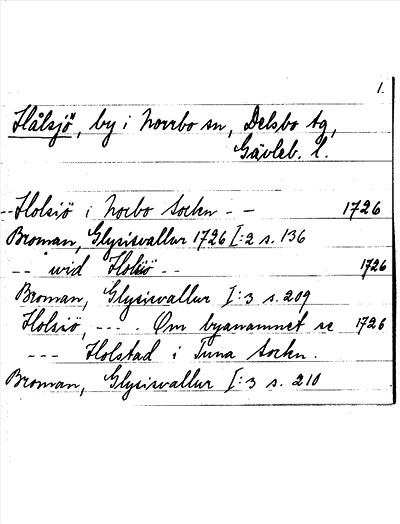 1.
Hålsjö, by i Norrbo sn, Delsbo tg,
Gävleb. l.
-- Holsiö i Norbo Sockn - - 1726
Broman, Glysisvallur 1726 I:2 s. 136
-- wid Holsiö -- 1726
Broman, Glysisvallur I:3 s. 209
Holsiö, --- . Om byanamnet se 1726
--- Holstad i Tuna Sockn.
Broman, Glysisvallur I:3 s. 210